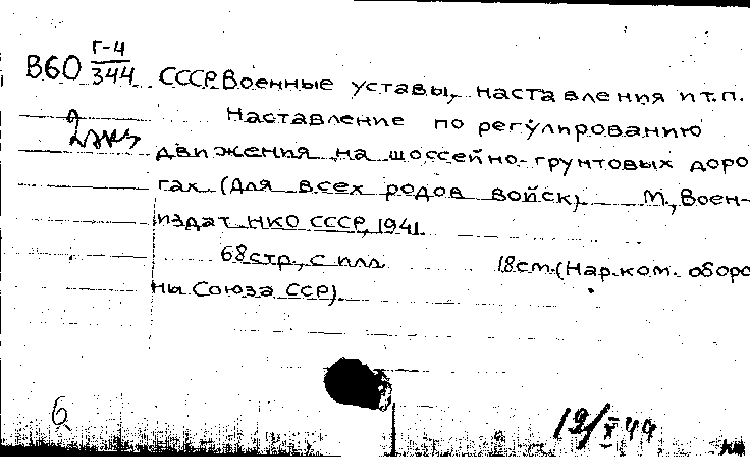 Г-4
В60 344 СССР. Военные уставы, наставления и т.п.
2 экз
Наставление по регулированию
движения на шоссейно-грунтовых доро
гах (Для всех родов войск). М., Воен-
издат НКО СССР, 1941.
68 стр., с илл. 18 см. (Нар. ком. оборо
ны Союза ССР).
6
19/X 44